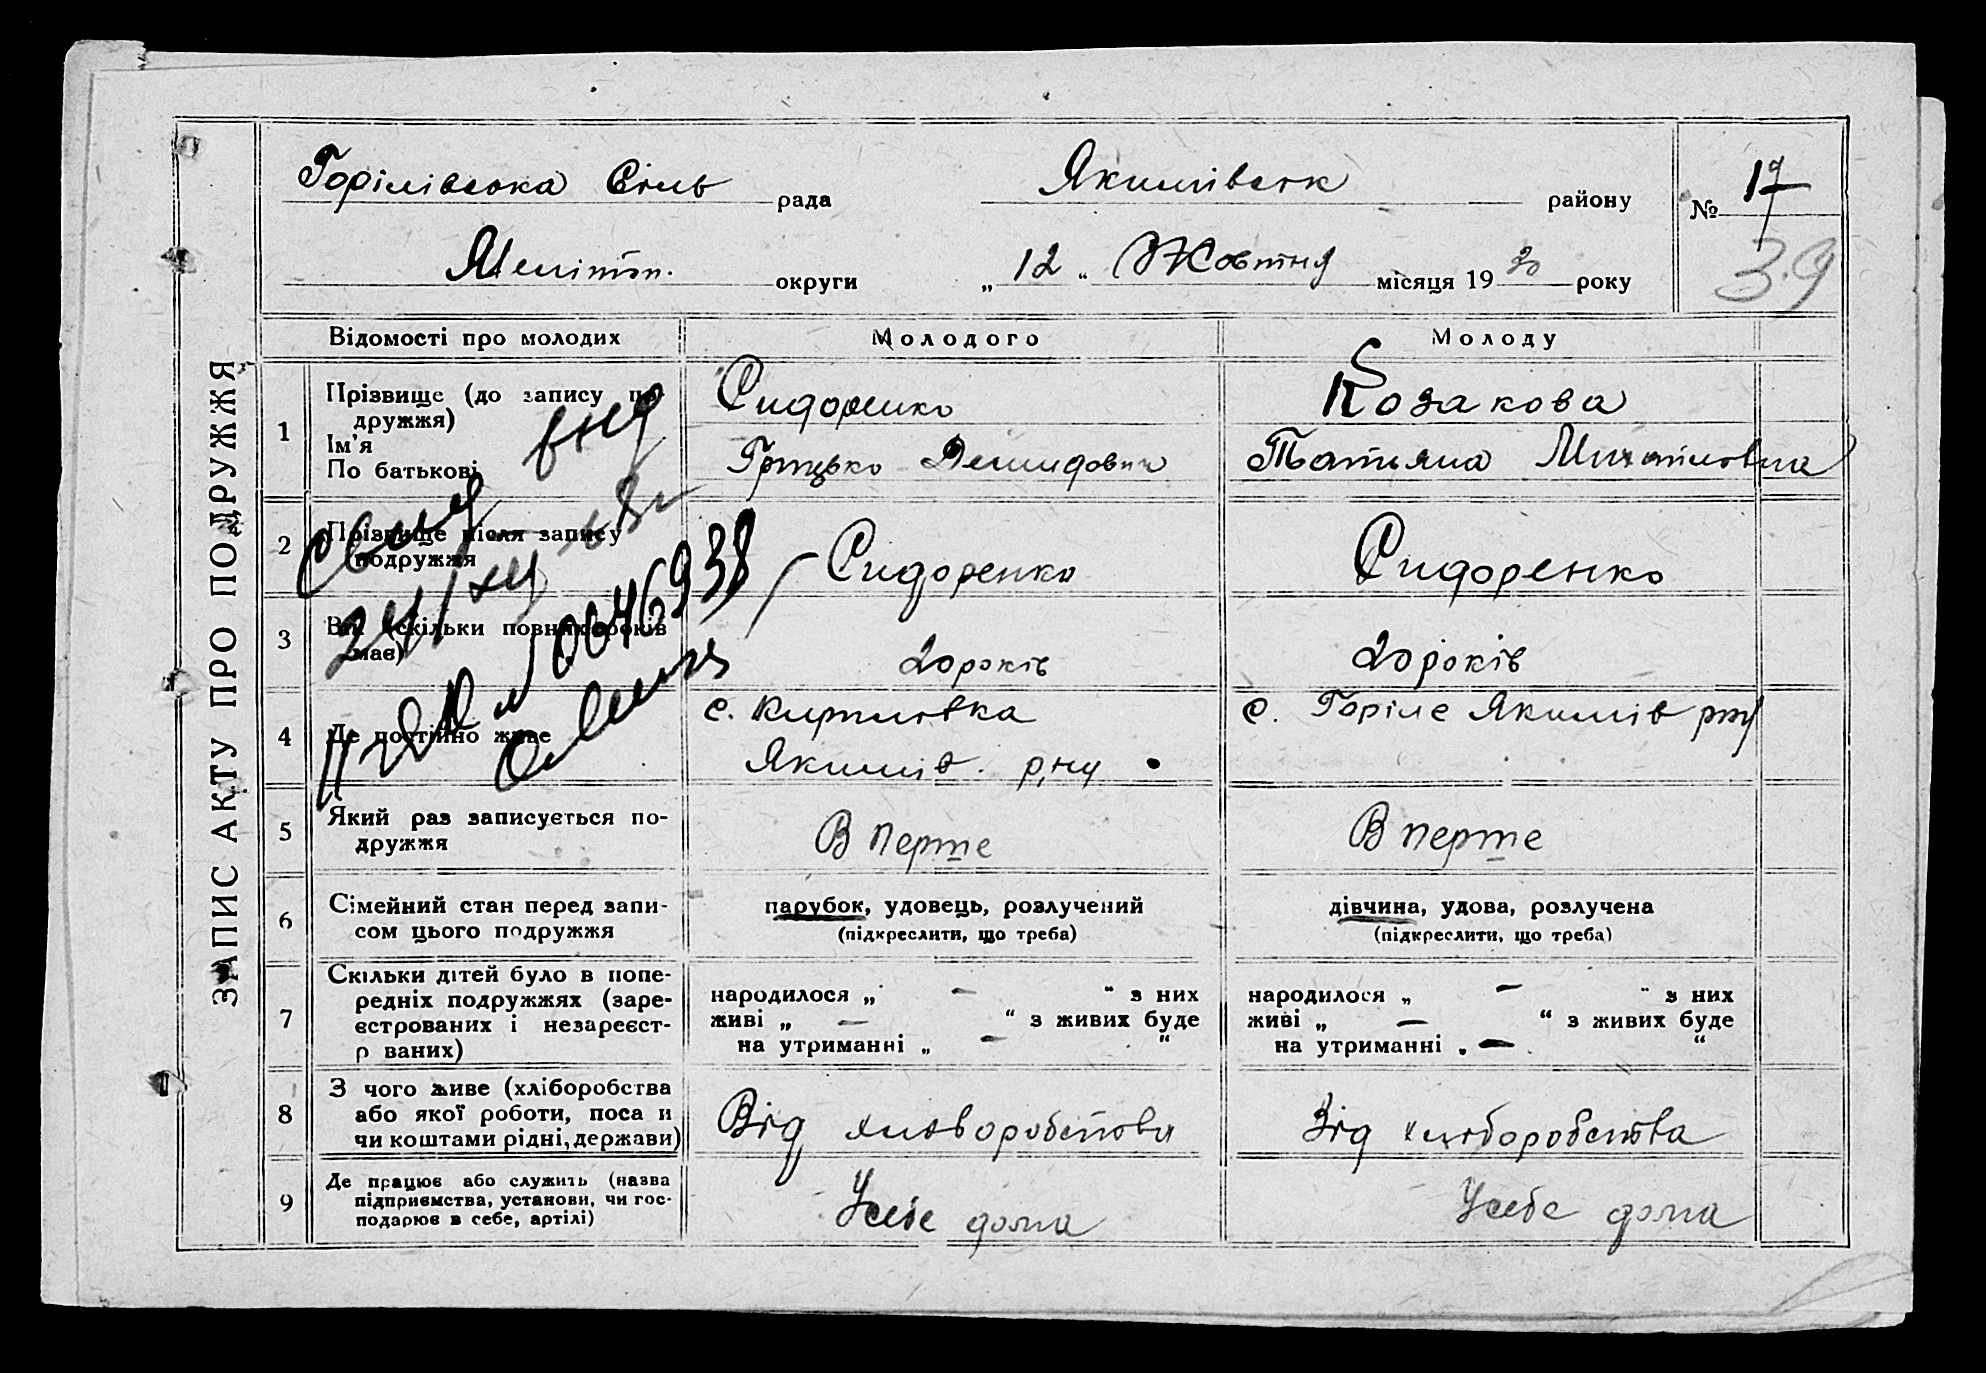 ЗАПИС АКТУ ПРО ПОДРУЖЖЯ
Горілівська Сіль рада Якимівськ району № 17
Мелітоп. округи „ 12 “ Жовтня місяця 19 20 року 39
Відомості про молодих Молодого Молоду
1 Прізвище (до запису подружжя) Сидоренко Козакова
Ім'я
По батькові Грицько Демидович Татьяна Михайловна
2 Прізвище після запису
подружжя Сидоренко Сидоренко
3 Вік (скільки повних років
має) 20 років 20 років
4 Де постійно живе с. Кирпиловка с. Горіле Якимів рну
Якимів. р,ну
0046938
5 Який раз записується по-
дружжя В перше В перше
6 Сімейний стан перед запи-
сом цього подружжя парубок, удовець, розлучений дівчина, удова, розлучена
(підкреслити, що треба) (підкреслити, що треба)
7 Скільки дітей було в попе-
редніх подружжях (заре-
єстрованих і незареєст-
р ваних) народилося „ — “ з них народилося „ — “ з них
живі „ — “ з живих буде живі „ — “ з живих буде
на утриманні „ — “ на утриманні „ — “
8 З чого живе (хліборобства
або якої роботи, поса и
чи коштами рідні, держави) Від хліборобства Від хліборобства
9 Де працює або служить (назва
підприємства, установи, чи гос-
подарює в себе, артілі) У себе дома У себе дома